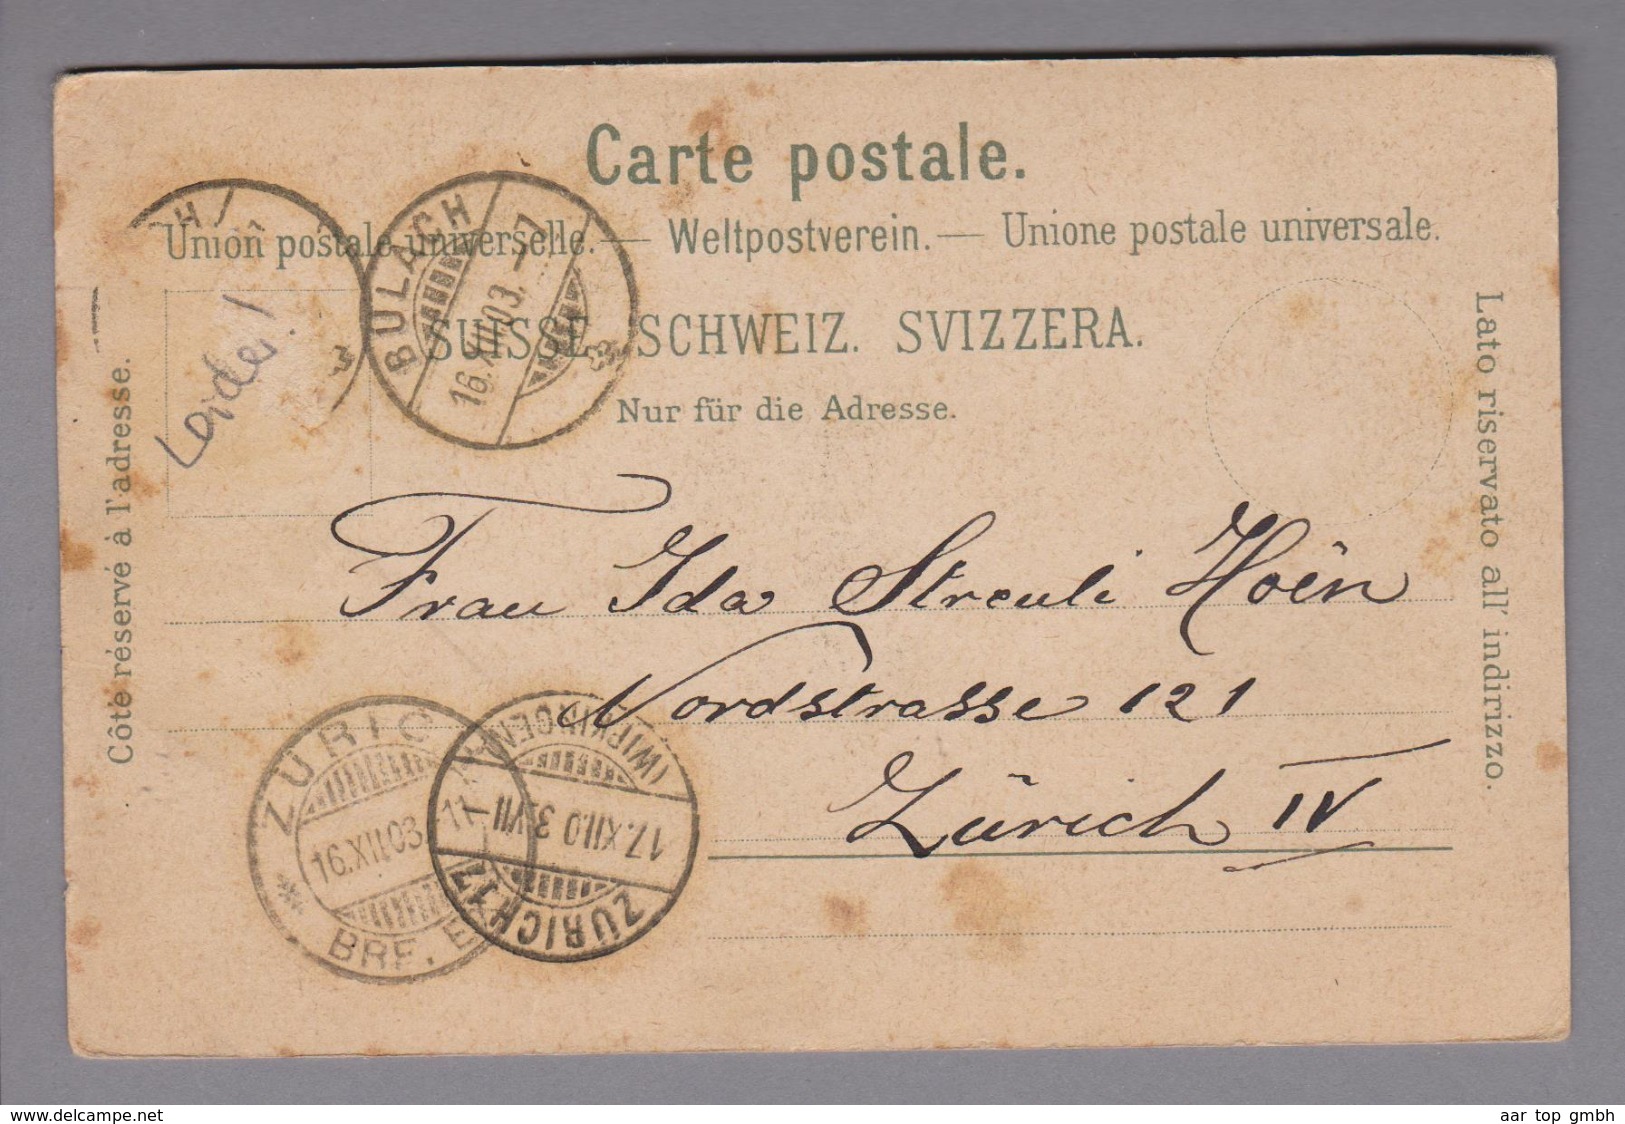 Carte postale.
Union postale universelle. — Weltpostverein. — Unione postale universale.
SUISSE. SCHWEIZ. SVIZZERA.
Nur für die Adresse.
Côté réservé à l'adresse.
Lato riservato all' indirizzo.
BÜLACH
16.XII.03.–7
leider!
Frau Ida Streuli Hoën
Nordstrasse 121
Zürich IV
ZÜRIC
16.XII.03. 11
BRF. E
(WIPKINGEN)
17.XII.03 VII–
ZÜRICH 17
www.delcampe.net
aar top gmbh